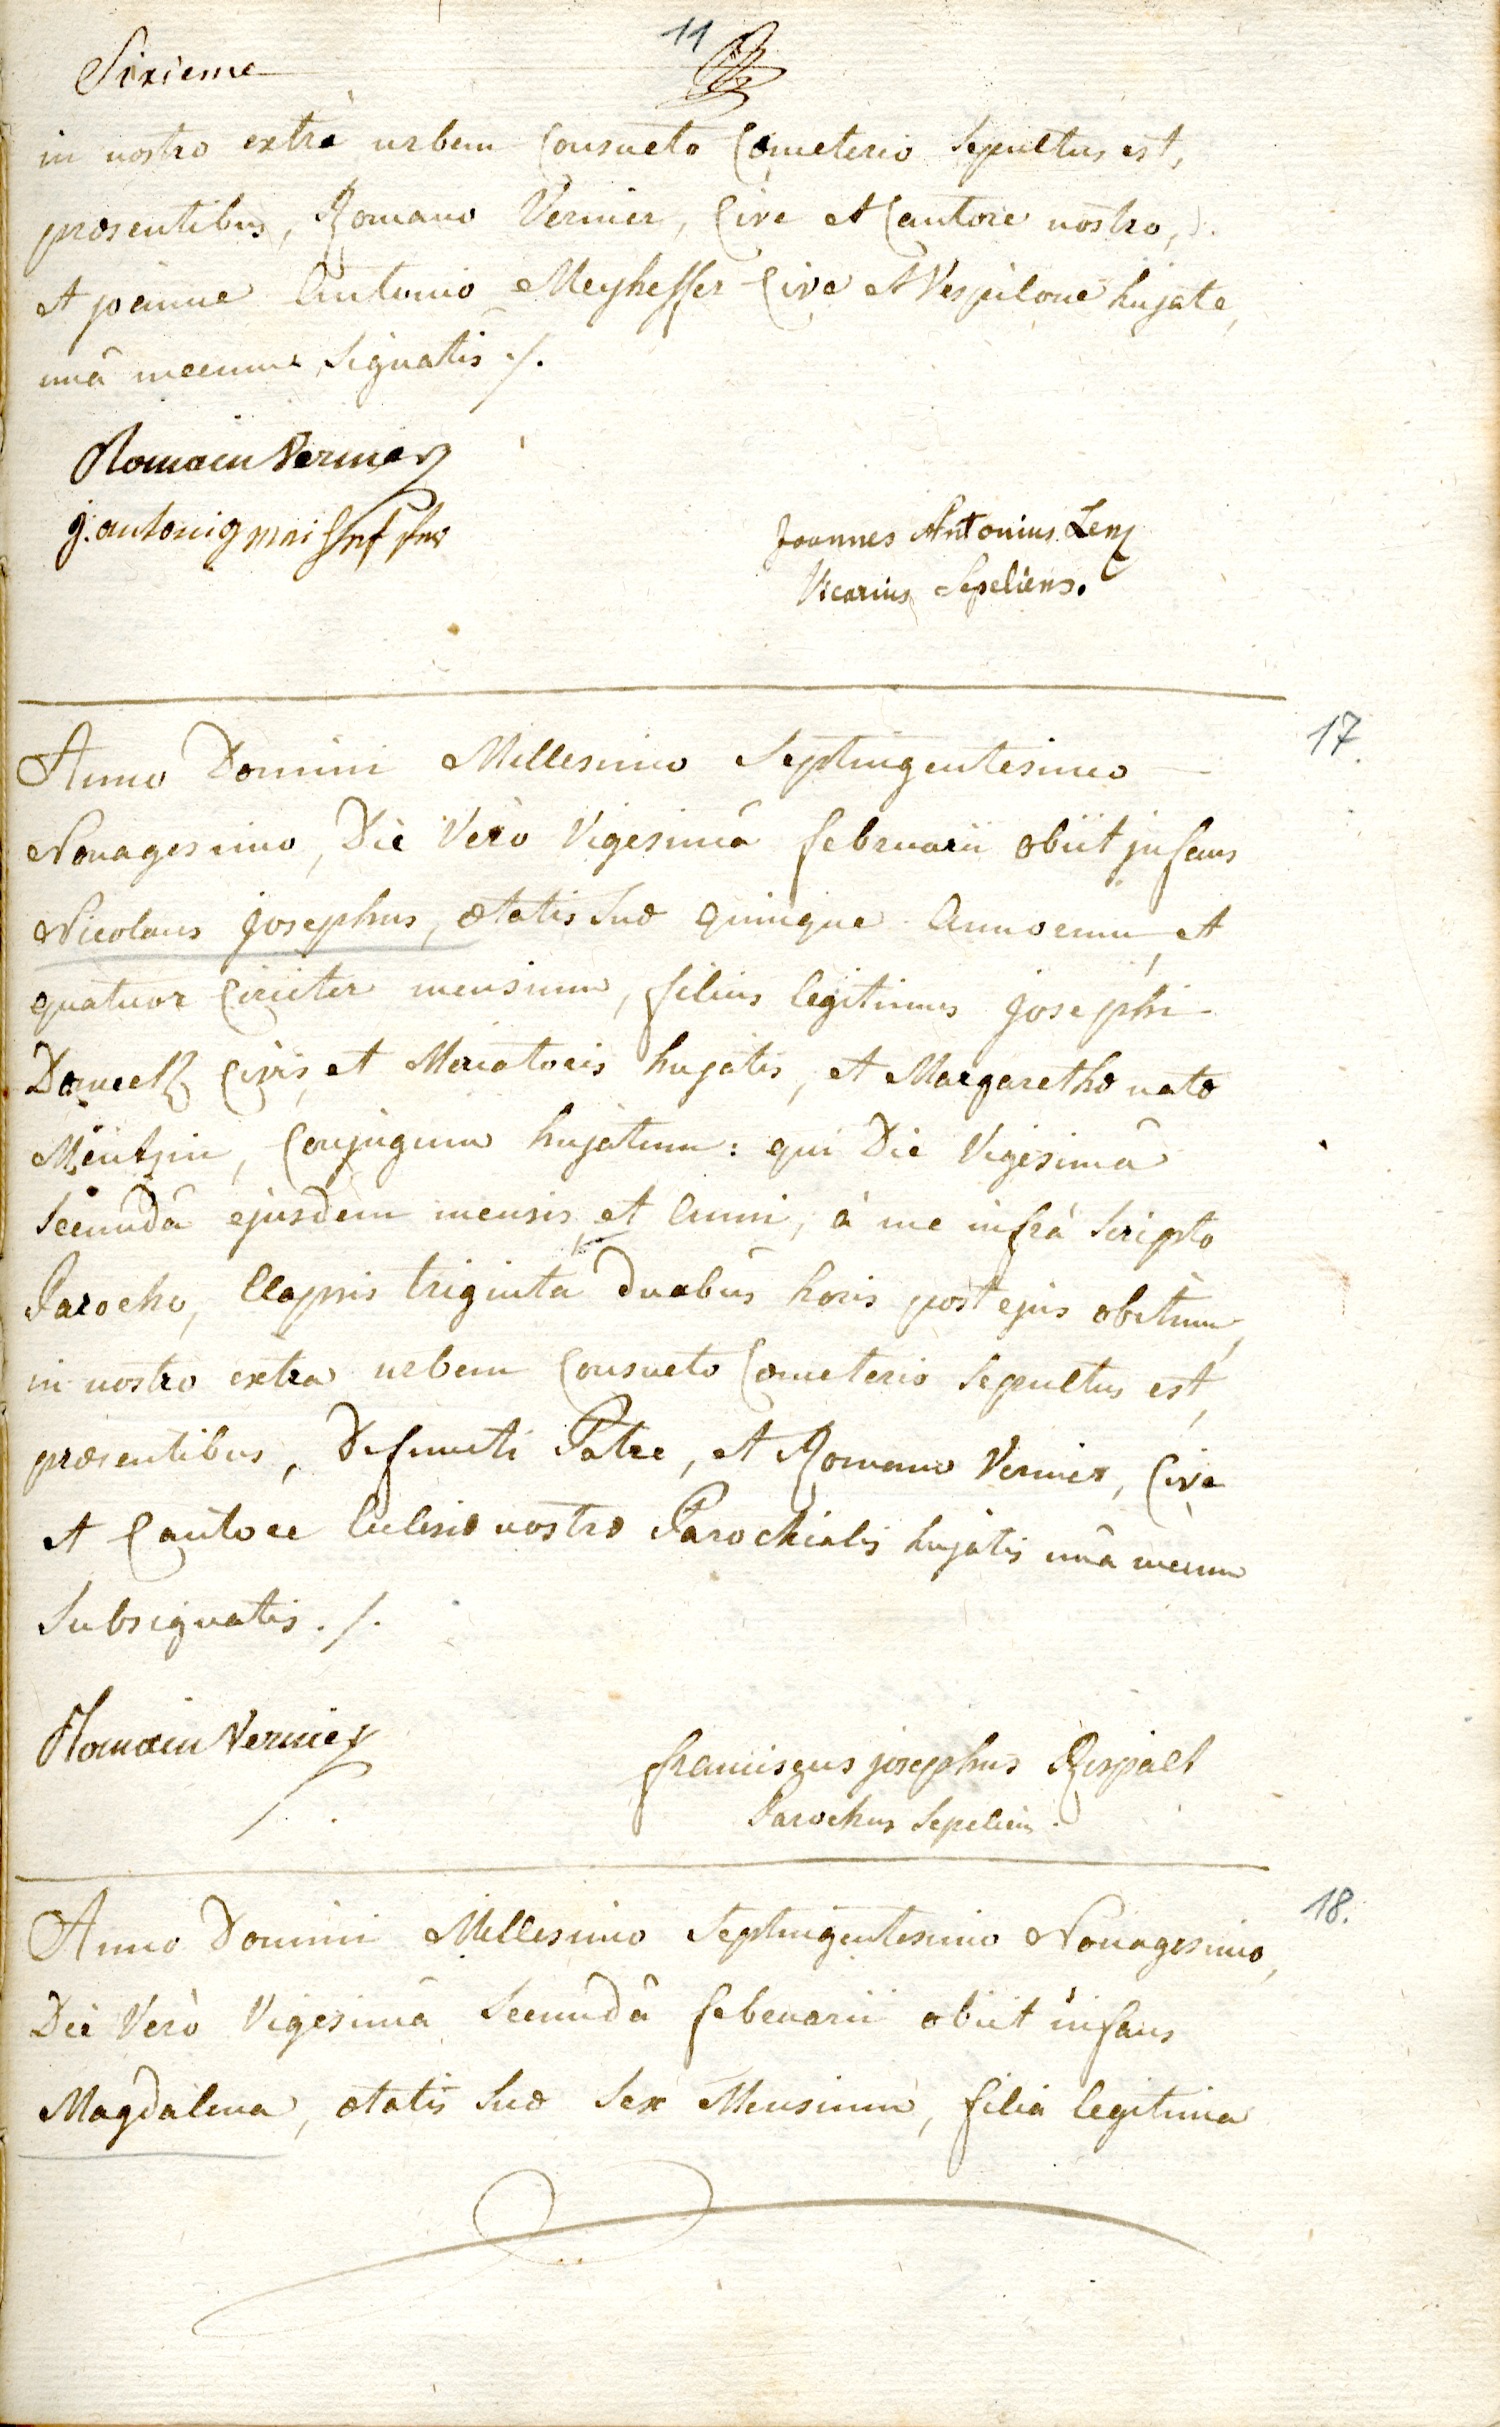 11
Sixieme
in nostro extrà urbem Consueto Cœmeterio Sepultus est,
præsentibus, Romano Vernier, Cive et Cantore nostro,
et joanne Antonio Meyheffer Cive et Vespilone hujate,
unâ mecum Signatis ./.
Romain Vernier
Joannes Antonius Lenz
Vicarius Sepeliens.
17.
Anno Domini Millesimo Septingentesimo
Nonagesimo, Die Verò Vigesimâ februarii obiit jnfans
Nicolaus josephus, ætatis Suæ quinque Annorum, et
quatuor Circiter mensium, filius legitimus josephi
Civis, et Mercatoris hujatis, et Margarethæ natæ
Mëntzin, Conjugum hujatum: qui Die Vigesimâ
Secundâ ejusdem mensis, et Anni, à me infrà Scripto
Parocho, Elapsis triginta duabus horis post ejus obitum,
in nostro extra urbem Consueto Cœmeterio Sepultus est,
præsentibus, Defuncti Patre, et Romano Vernier, Cive
et Cantore Ecclesiæ nostræ Parochialis hujatis unâ mecum
Subsignatis ./.
Romain Vernier
franciscus josephus Respalt
Parochus Sepeliens.
18.
Anno Domini Millesimo Septingentesimo Nonagesimo,
Die Verò Vigesimâ Secundâ februarii obiit infans
Magdalena, ætatis Suæ Sex Mensium, filia legitima